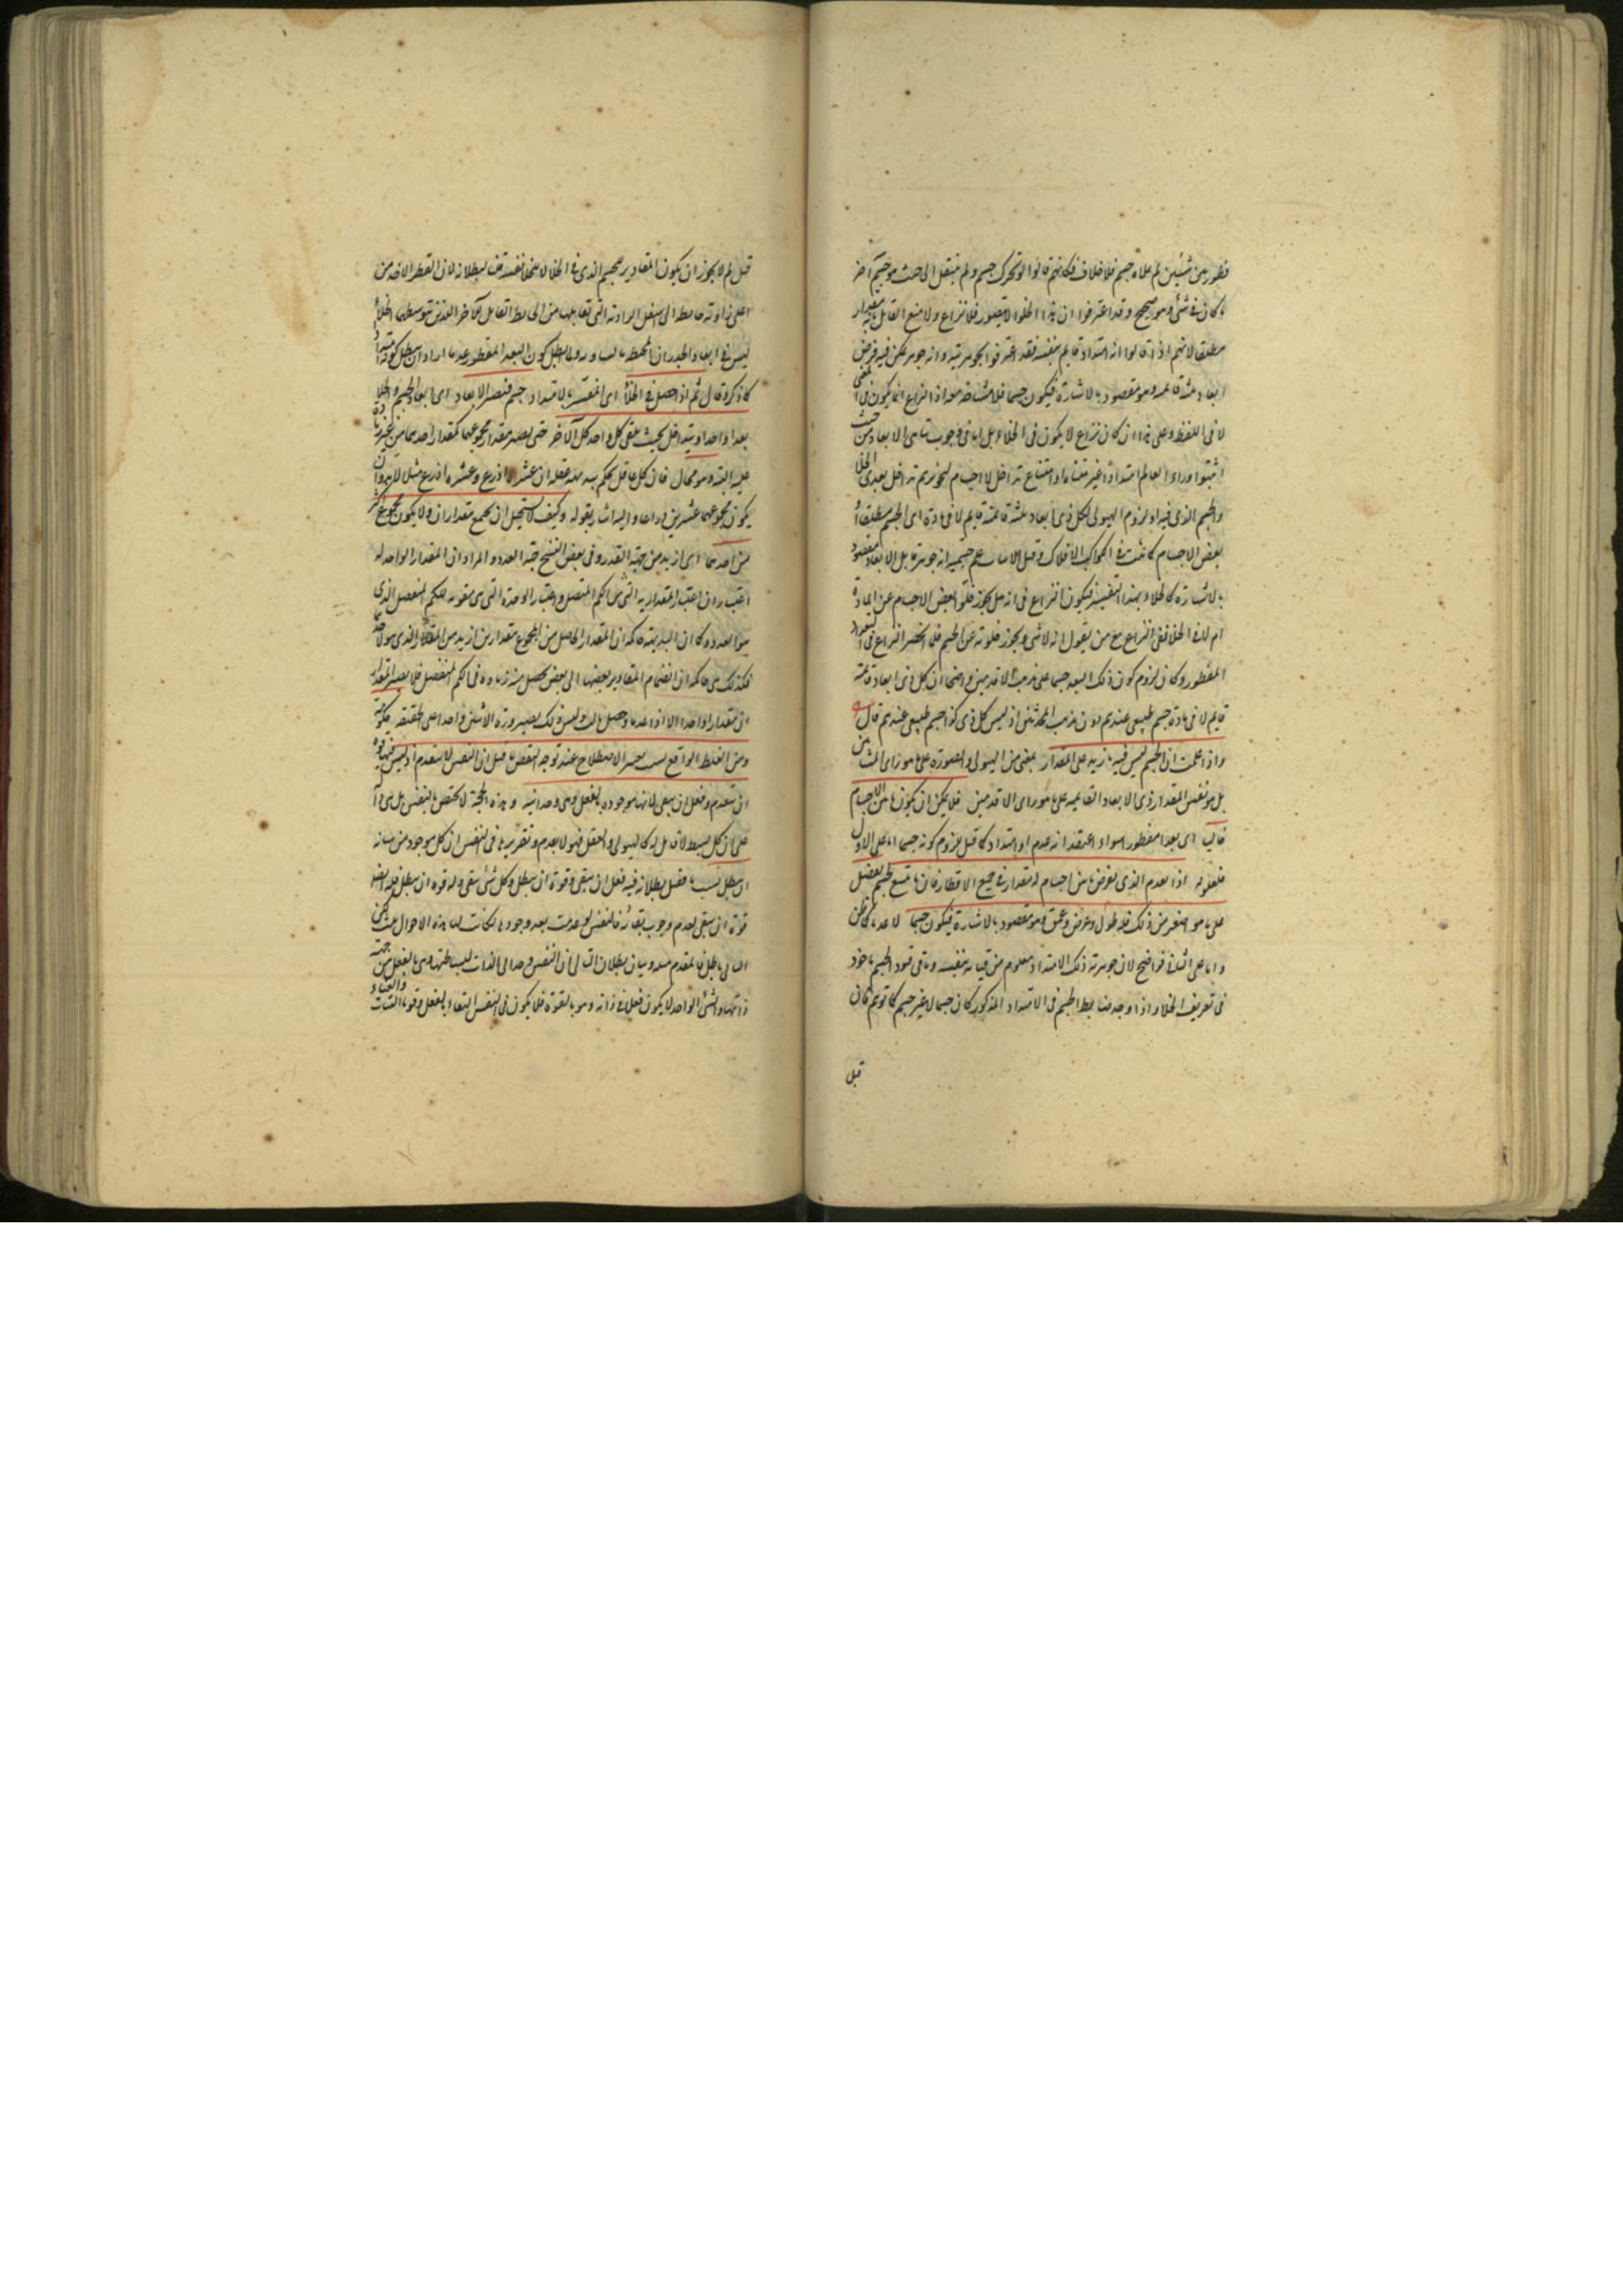 فطور بين شيئين لم يملاه جسم فلا خلاف فكانهم قالوا لو تحرك جسم ولم ينتقل الى حيث هو جسم آخر
كان في شيء وهو صحيح وقد اعترفوا ان هذا الخلو لا يتصور فلا نزاع ولا منع القائل مقدار
مطلقا لانهم اذا قالوا انه امتداد قايم بنفسه فقد اعترفوا بجوهريته وانه جوهر يمكن فيه فرض
ابعاد ثلثة قائمة وهو مقصود بالاشارة فيكون جسما فلا مشاحة اذ النزاع انما يكون في المعنى
لا في اللفظ وعلى هذا ان كان نزاع لا يكون في الخلاء بل اما في وجوب تناهى الابعاد حيث
اثبتوا وراء العالم امتدادا غير متناه او امتناع تداخل الاجسام لتجويزهم تداخل بعدى الخلا
والجسم الذى فيه او لزوم الهيولى لكل ذى ابعاد ثلثة قائمة قايم لا في مادة اى الجسم مطلقا
بعض الاجسام كما ثبت في الافلاك وقبل الاسلام جسمية انه جوهر قابل الابعاد مقصود
بالاشارة كالخلاء وبهذا التفسير فيكون النزاع في انه هل يجوز خلو بعض الاجسام عن المادة
ام لا في الخلا فبقى النزاع مع من يقول انه لا شى ويجوز خلوته عن الجسم فلما انحصر النزاع في البعد
المفطور وكان لزوم كون ذلك البعد جسما على مذهب الاقدمين واضحا ان كل ذى ابعاد قائمة
قايم لا في مادة جسم طبيعى عندهم دون مذهب المحدثين اذ ليس كل ذى كذا جسم طبيعى عندهم قال
واذا علمت ان الجسم ليس فيه ما يزيد على المقدار بمعنى من الهيولى والصورة على ما هو راى المشائين
بل هو نفس المقدار ذى الابعاد القايمة على ما هو راى الاقدمين فلا يمكن ان يكون ما بين الاجسام
خاليا اى بعدا مفطورا سواء اعتقد انه عدم او امتداد كما قيل لزوم كونه جسما اما على الاول
فلقوله اذ العدم الذى يفرض ما بين اجسام له مقدار في جميع الاقطار فان ما يتسع لجسم يفضل
على ما هو اصغر من ذلك فله طول وعرض وعمق وهو مقصود بالاشارة فيكون جسما لا عدما كما ظن
واما على الثانى فواضح لان جوهرية ذلك الامتداد معلوم من قيامه بنفسه وباقى قيود الجسم ماخوذ
في تعريف الخلا واذا وجد ضابط الجسم في الامتداد المذكور كان جسما لا غير جسم كما توهم فان
قيل
قيل لم لا يجوز ان يكون المقادير للجسم الذى في الخلا لا للخلا نفسه قلنا بطلانه لان القطر الاخذ من
اعلى زاوية حائط الى اسفل الزاوية التى تقابلها من الحائط القابل الآخر الذين توسطهما الخلأ
ليس في ابعاد الجدران المحيطة ولما ابطل كون البعد المفطور عدما اراد ان يبطل كونه امتدادا
كما ذكر وقال ثم اذا حصل في الخلأ اى المفسر بالامتداد جسم فتصير الابعاد اى ابعاد الجسم والخلا
بعدا واحدا ويتداخل بحيث يلقى كل واحد كل الآخر حتى يصير مقدار مجموعهما كمقدار احدهما من غير زيادة
عليه البتة وهو محال فان كل عاقل يحكم ببديهة عقله ان عشرة اذرع وعشرة اذرع مثلا لا بد وان
يكون مجموعهما عشرين ذراعا واليه اشار بقوله وكيف لا يستحيل ان يجتمع مقداران ولا يكون المجموع اكبر
من احدهما اى ازيد من جهة القدر وفى بعض النسخ جهة العدد والمراد ان المقدار الواحد له
اعتباران اعتبار المقدارية التى من الكم المتصل واعتبار الوحدة التى هى مقومة للكم المنفصل الذى
هو العدد وكما ان البديهة حاكمة ان المقدار الحاصل من المجموع مقدارين ازيد من المقدار الذى هو لاحدهما
فكذلك هى حاكمة ان انضمام المقادير بعضها الى بعض يحصل منه زيادة في الكم المنفصل فلا يصير المقدار
ان مقدارا واحدا الا اذا عدما وحصل ثالث وليس ذلك بصيرورة الاثنين واحدا على الحقيقة
ومن الغلط الواقع بسبب تغيير الاصطلاح عند توجه النقض ما قيل ان النفس لا ينعدم اذ ليس فيها قوة
ان ينعدم وفعل ان يبقى لانها موجودة بالفعل وهى وحدانية وهذه الحجة لا تختص بالنفس بل
على ان كل بسيط لا قابل له كالهيولى والعقل فهو لا يعدم وتقريره في النفس ان كل موجود من شانه
ان يبطل بسبب ما فقبل بطلانه فيه فعل ان يبقى وقوة ان يبطل وكل شئ يبقى وله قوة ان يبطل فله ايضا
قوة ان يبقى لعدم وجوب بقائه فالنفس لو عدمت بعد وجودها لكانت لها هذه الاحوال
التالى باطل فالمقدم مثله وبيان بطلان التالى ان النفس وحدانى الذات لبساطتها وهى بالفعل من جهة
ذاتها والشئ الواحد لا يكون فعل في ذاته وهو بالقوة فلا يكون في النفس البقاء بالفعل وقوة الثبات والفناء